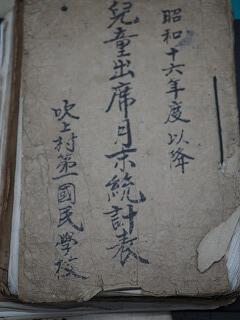 昭和十六年度以降
兒童出席月末統計表
吹上村第一國民學校